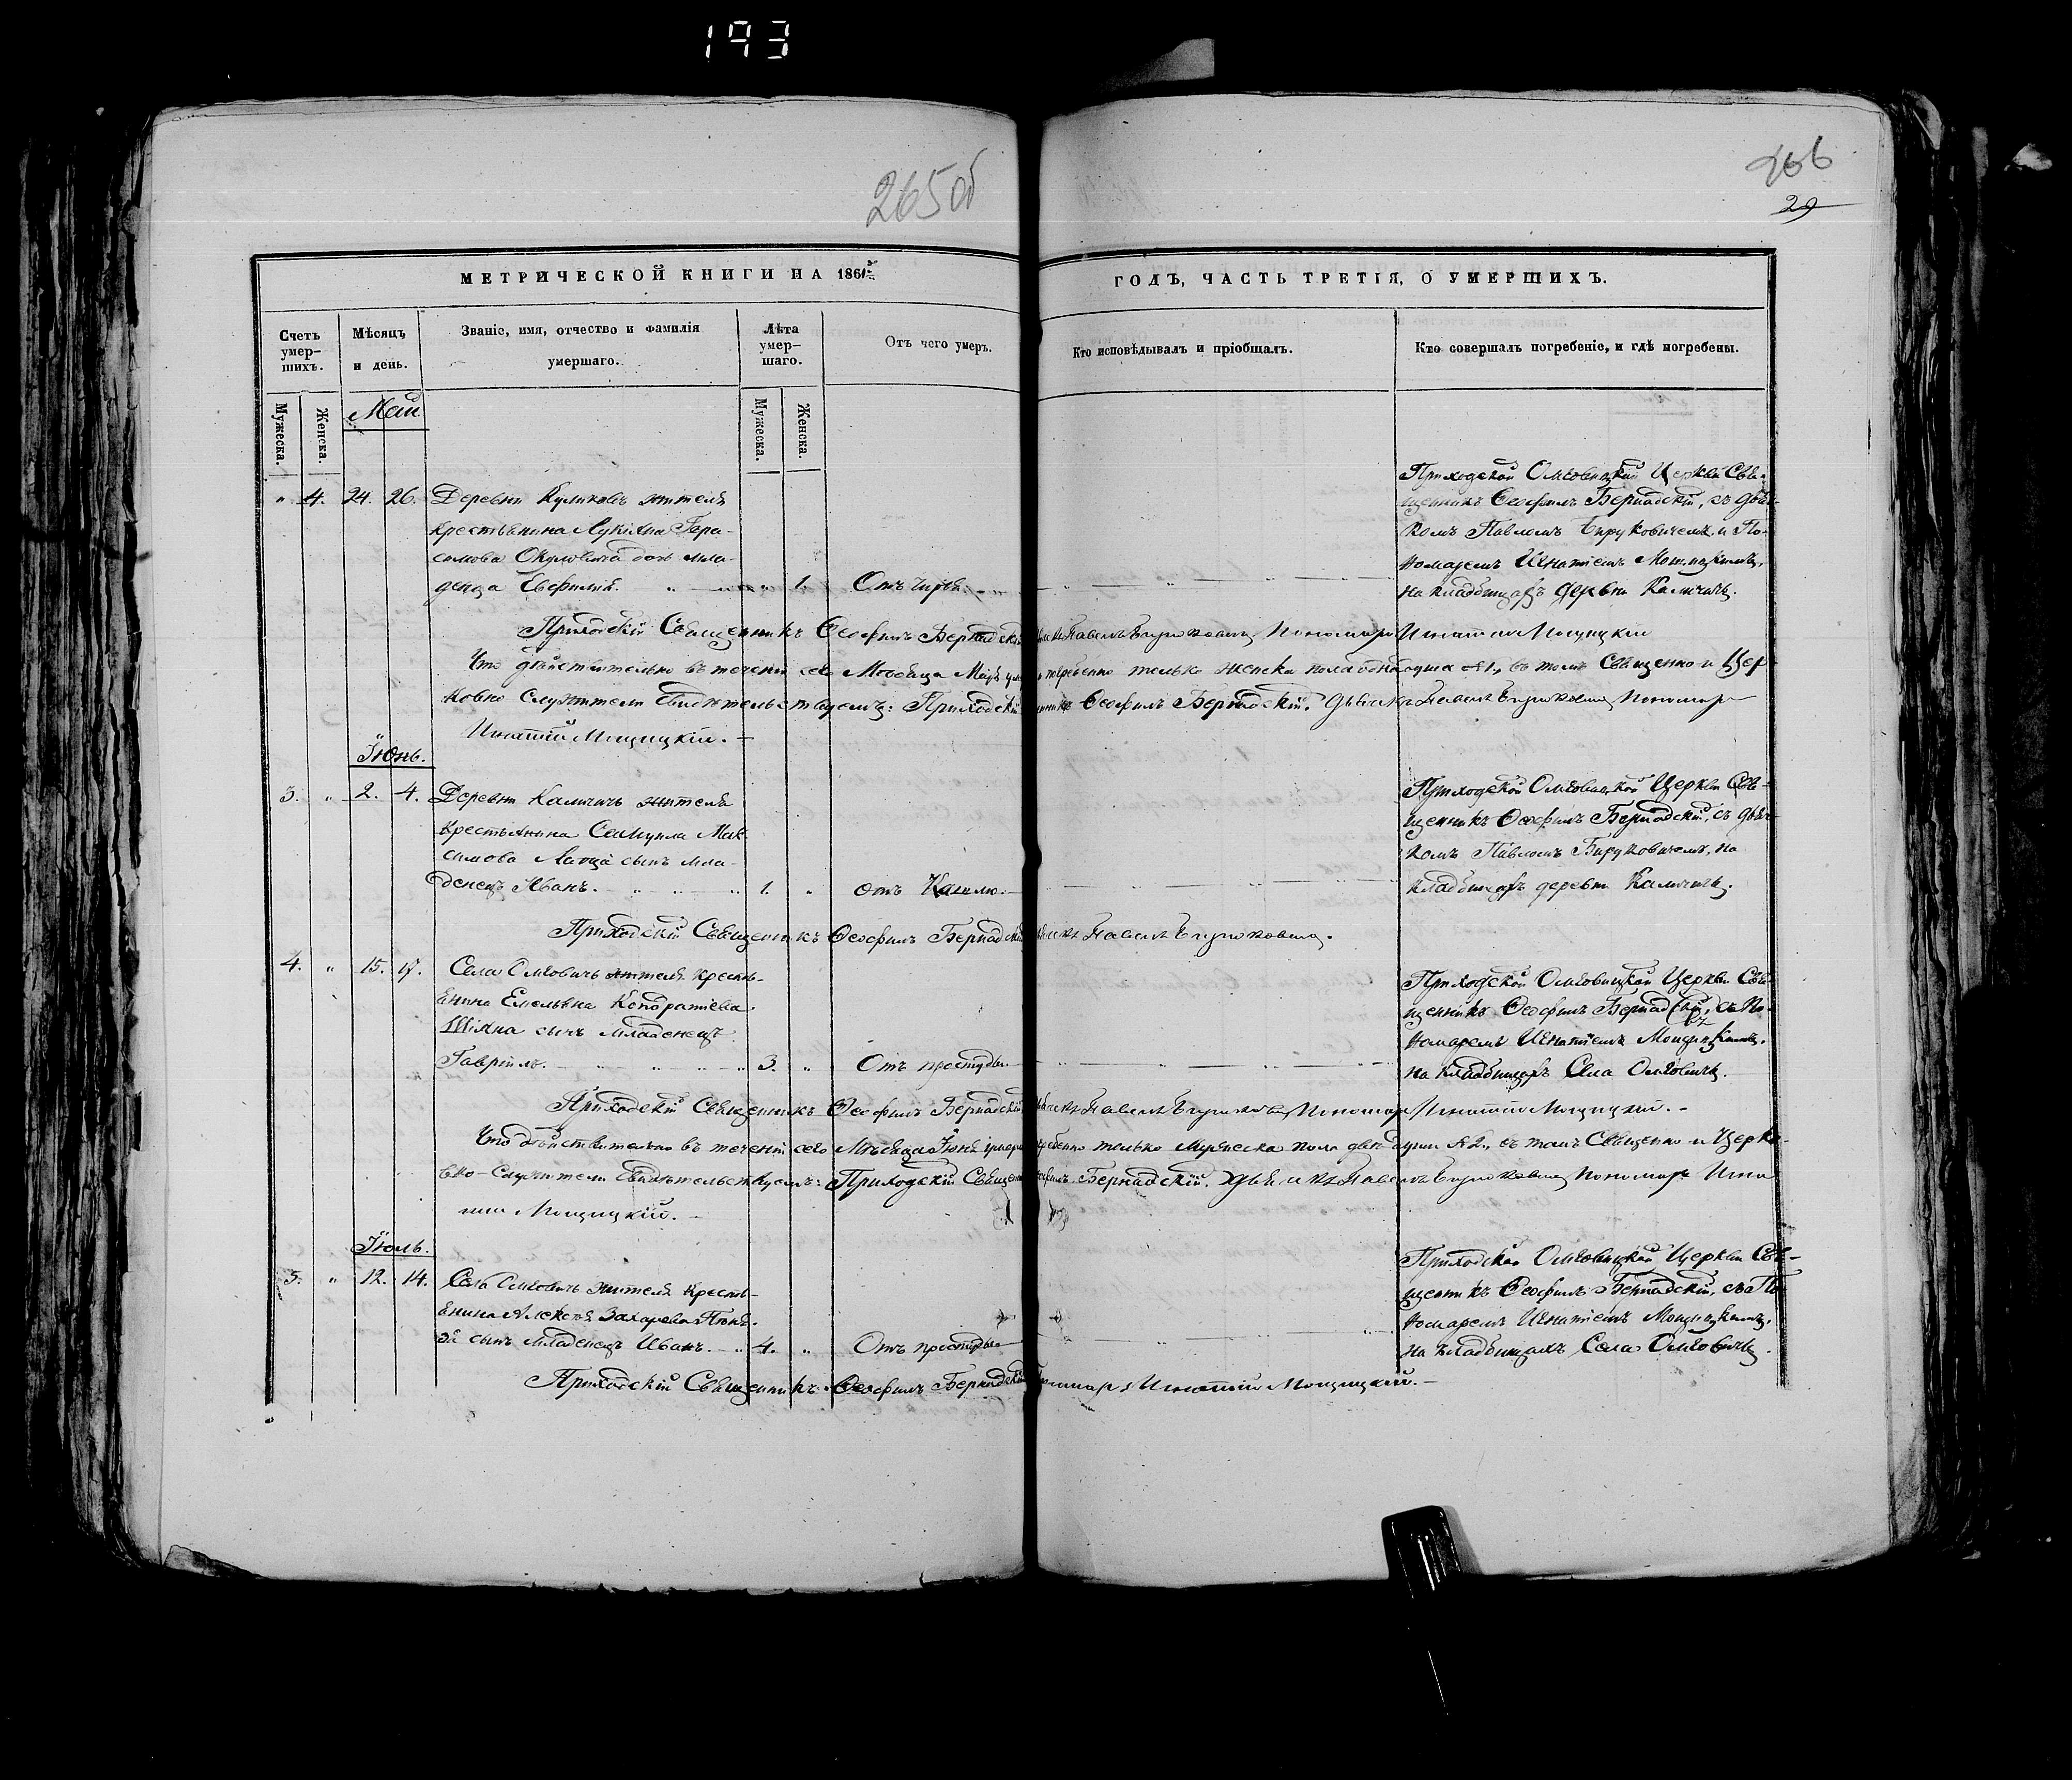 193
265 об
266
29
МЕТРИЧЕСКОЙ КНИГИ НА 186
ГОДЪ, ЧАСТЬ ТРЕТІЯ, О УМЕРШИХЪ.
Счетъ умер-шихъ.
Мѣсяцъ и день.
Званіе, имя, отчество и фамилія умершаго.
Лѣта умер-шаго.
Отъ чего умеръ.
Кто исповѣдывалъ и пріобщалъ.
Кто совершалъ погребеніе, и гдѣ погребены.
Мужеска.
Женска.
Мужеска.
Женска.
Май
" 4. 24. 26. Деревни Куликовъ жителя
крестьянина Лукіяна Гера-
симова дочь мла-
денца Евфимія. " 1. Отъ
Приходской Омговицкой Церкви Свя-
щенникъ Ѳеофилъ Бернадскій, съ дьяч-
комъ Павломъ Бируковичемъ и По-
номаремъ Игнатіемъ Мощицкимъ,
на кладбищахъ деревни Калчичь.
Приходскій Священникъ Ѳеофилъ Бернадскій Павелъ Бируковичъ Пономарь Игнатій Мощицкій
Что дѣйствительно въ теченіи сего Мѣсяца Мая погребенно только женска пола одна душа №1., въ томъ Священно и Цер-
ковно служители свидѣтельствуемъ: Приходскій Ѳеофилъ Бернадскій. Дьячекъ Павелъ Бируковичъ Пономарь
Игнатій Мощицкій.
Іюнь.
3. " 2. 4. Деревни Калчичь жителя
крестьянина Самуила Мак-
симова сынъ мла-
денецъ Иванъ. 1. " отъ Кашлю.
Приходской Омговицкой Церкви Свя-
щенникъ Ѳеофилъ Бернадскій, съ дьяч-
комъ Павломъ Бируковичемъ, на
кладбищахъ деревни Калчичь.
Приходскій Священникъ Ѳеофилъ Бернадскій Павелъ Бируковичъ.
4. " 15. 17. Села Омговичь жителя кресть-
янина Емельяна Кондратіева
Шіяна сынъ младенецъ
Гавріилъ. 3. " Отъ простуды
Приходской Омговицкой Церкви Свя-
щенникъ Ѳеофилъ Бернадскій, съ По-
номаремъ Игнатіемъ Мощицкимъ,
на кладбищахъ Села Омговичь.
Приходскій Священникъ Ѳеофилъ Бернадскій Павелъ Бируковичъ Пономарь Игнатій Мощицкій.
Что дѣйствительно въ теченіи сего Мѣсяца Іюня только Мужеска пола двѣ души №2., въ томъ Священно и Церко-
вно-служители свидѣтельствуемъ: Приходскій Бернадскій. Дьячекъ Павелъ Бируковичъ Пономарь Игна
тій Мощицкій.
Іюль.
5. " 12. 14. Села Омговичь жителя кресть-
янина Алексѣя Захарова
сынъ младенецъ Иванъ. 4. " Отъ простуды
Приходской Омговицкой Церкви Свя-
щенникъ Ѳеофилъ Бернадскій, съ По
номаремъ Игнатіемъ Мощицкимъ,
на кладбищахъ Села Омговичь.
Приходскій Священникъ Ѳеофилъ Бернадскій Пономарь Игнатій Мощицкій.